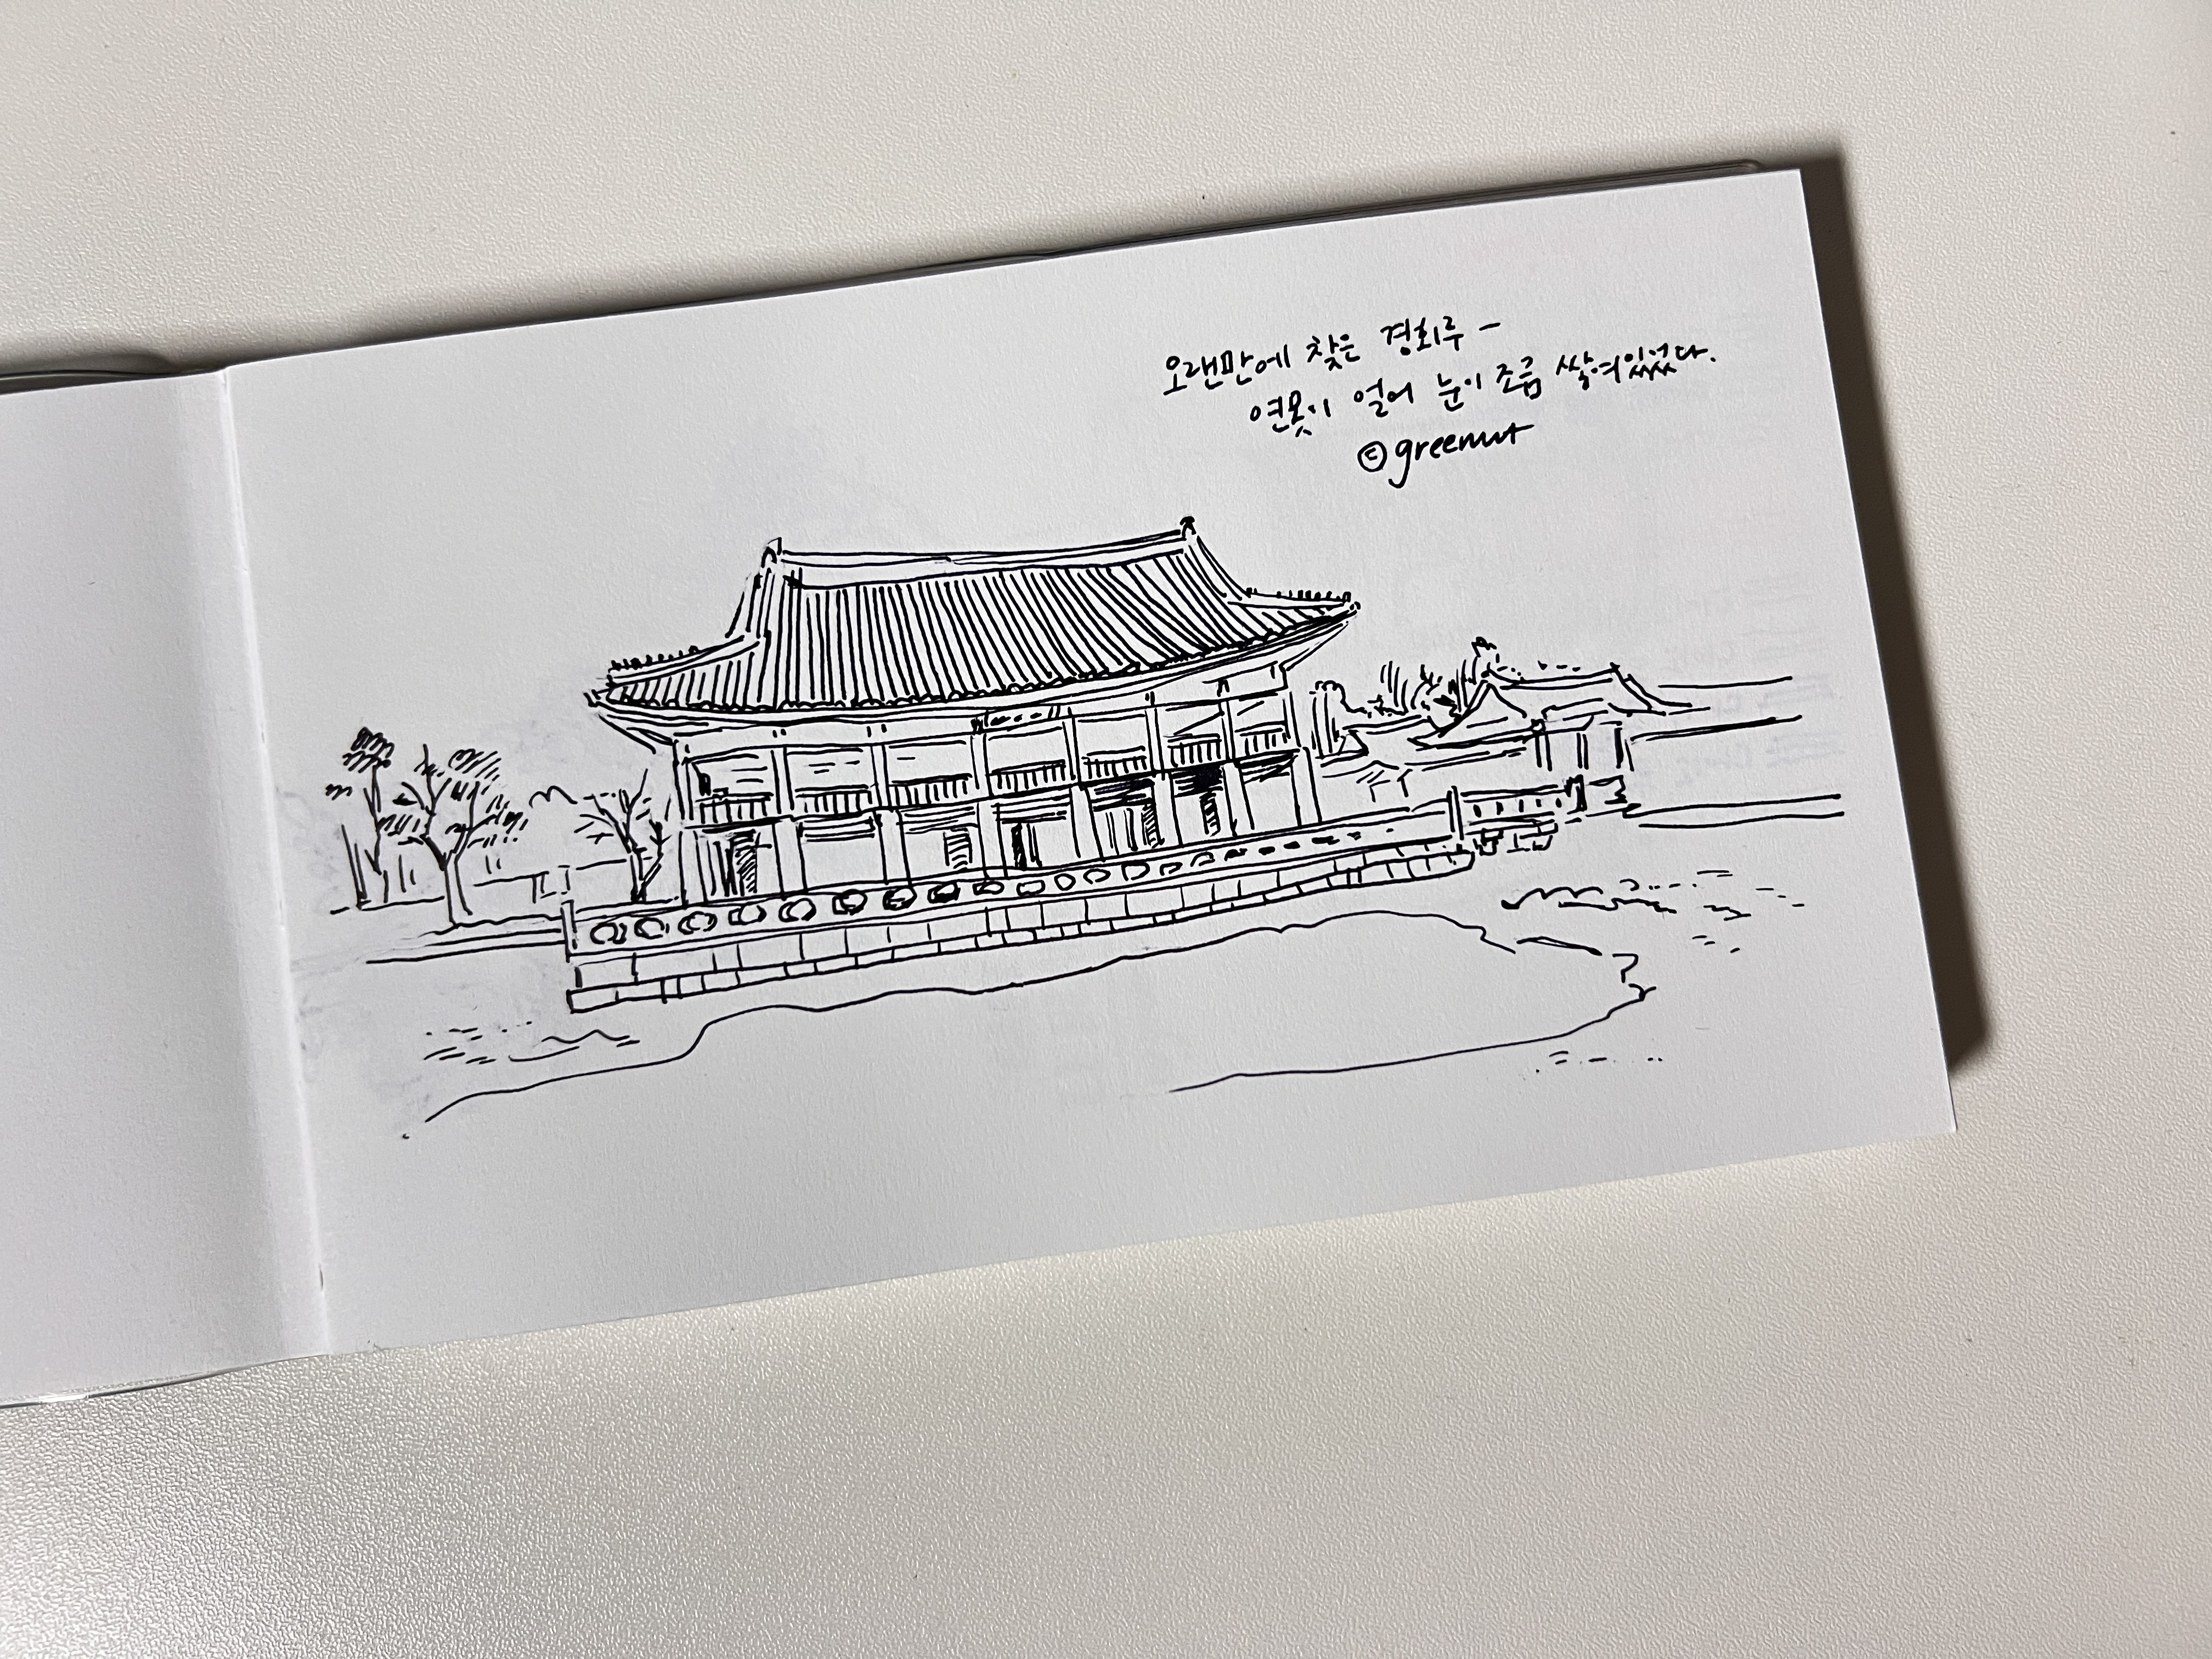 오랜만에 찾은 경회루 -
연못이 얼어 눈이 조금 쌓여있었다.
©greenut